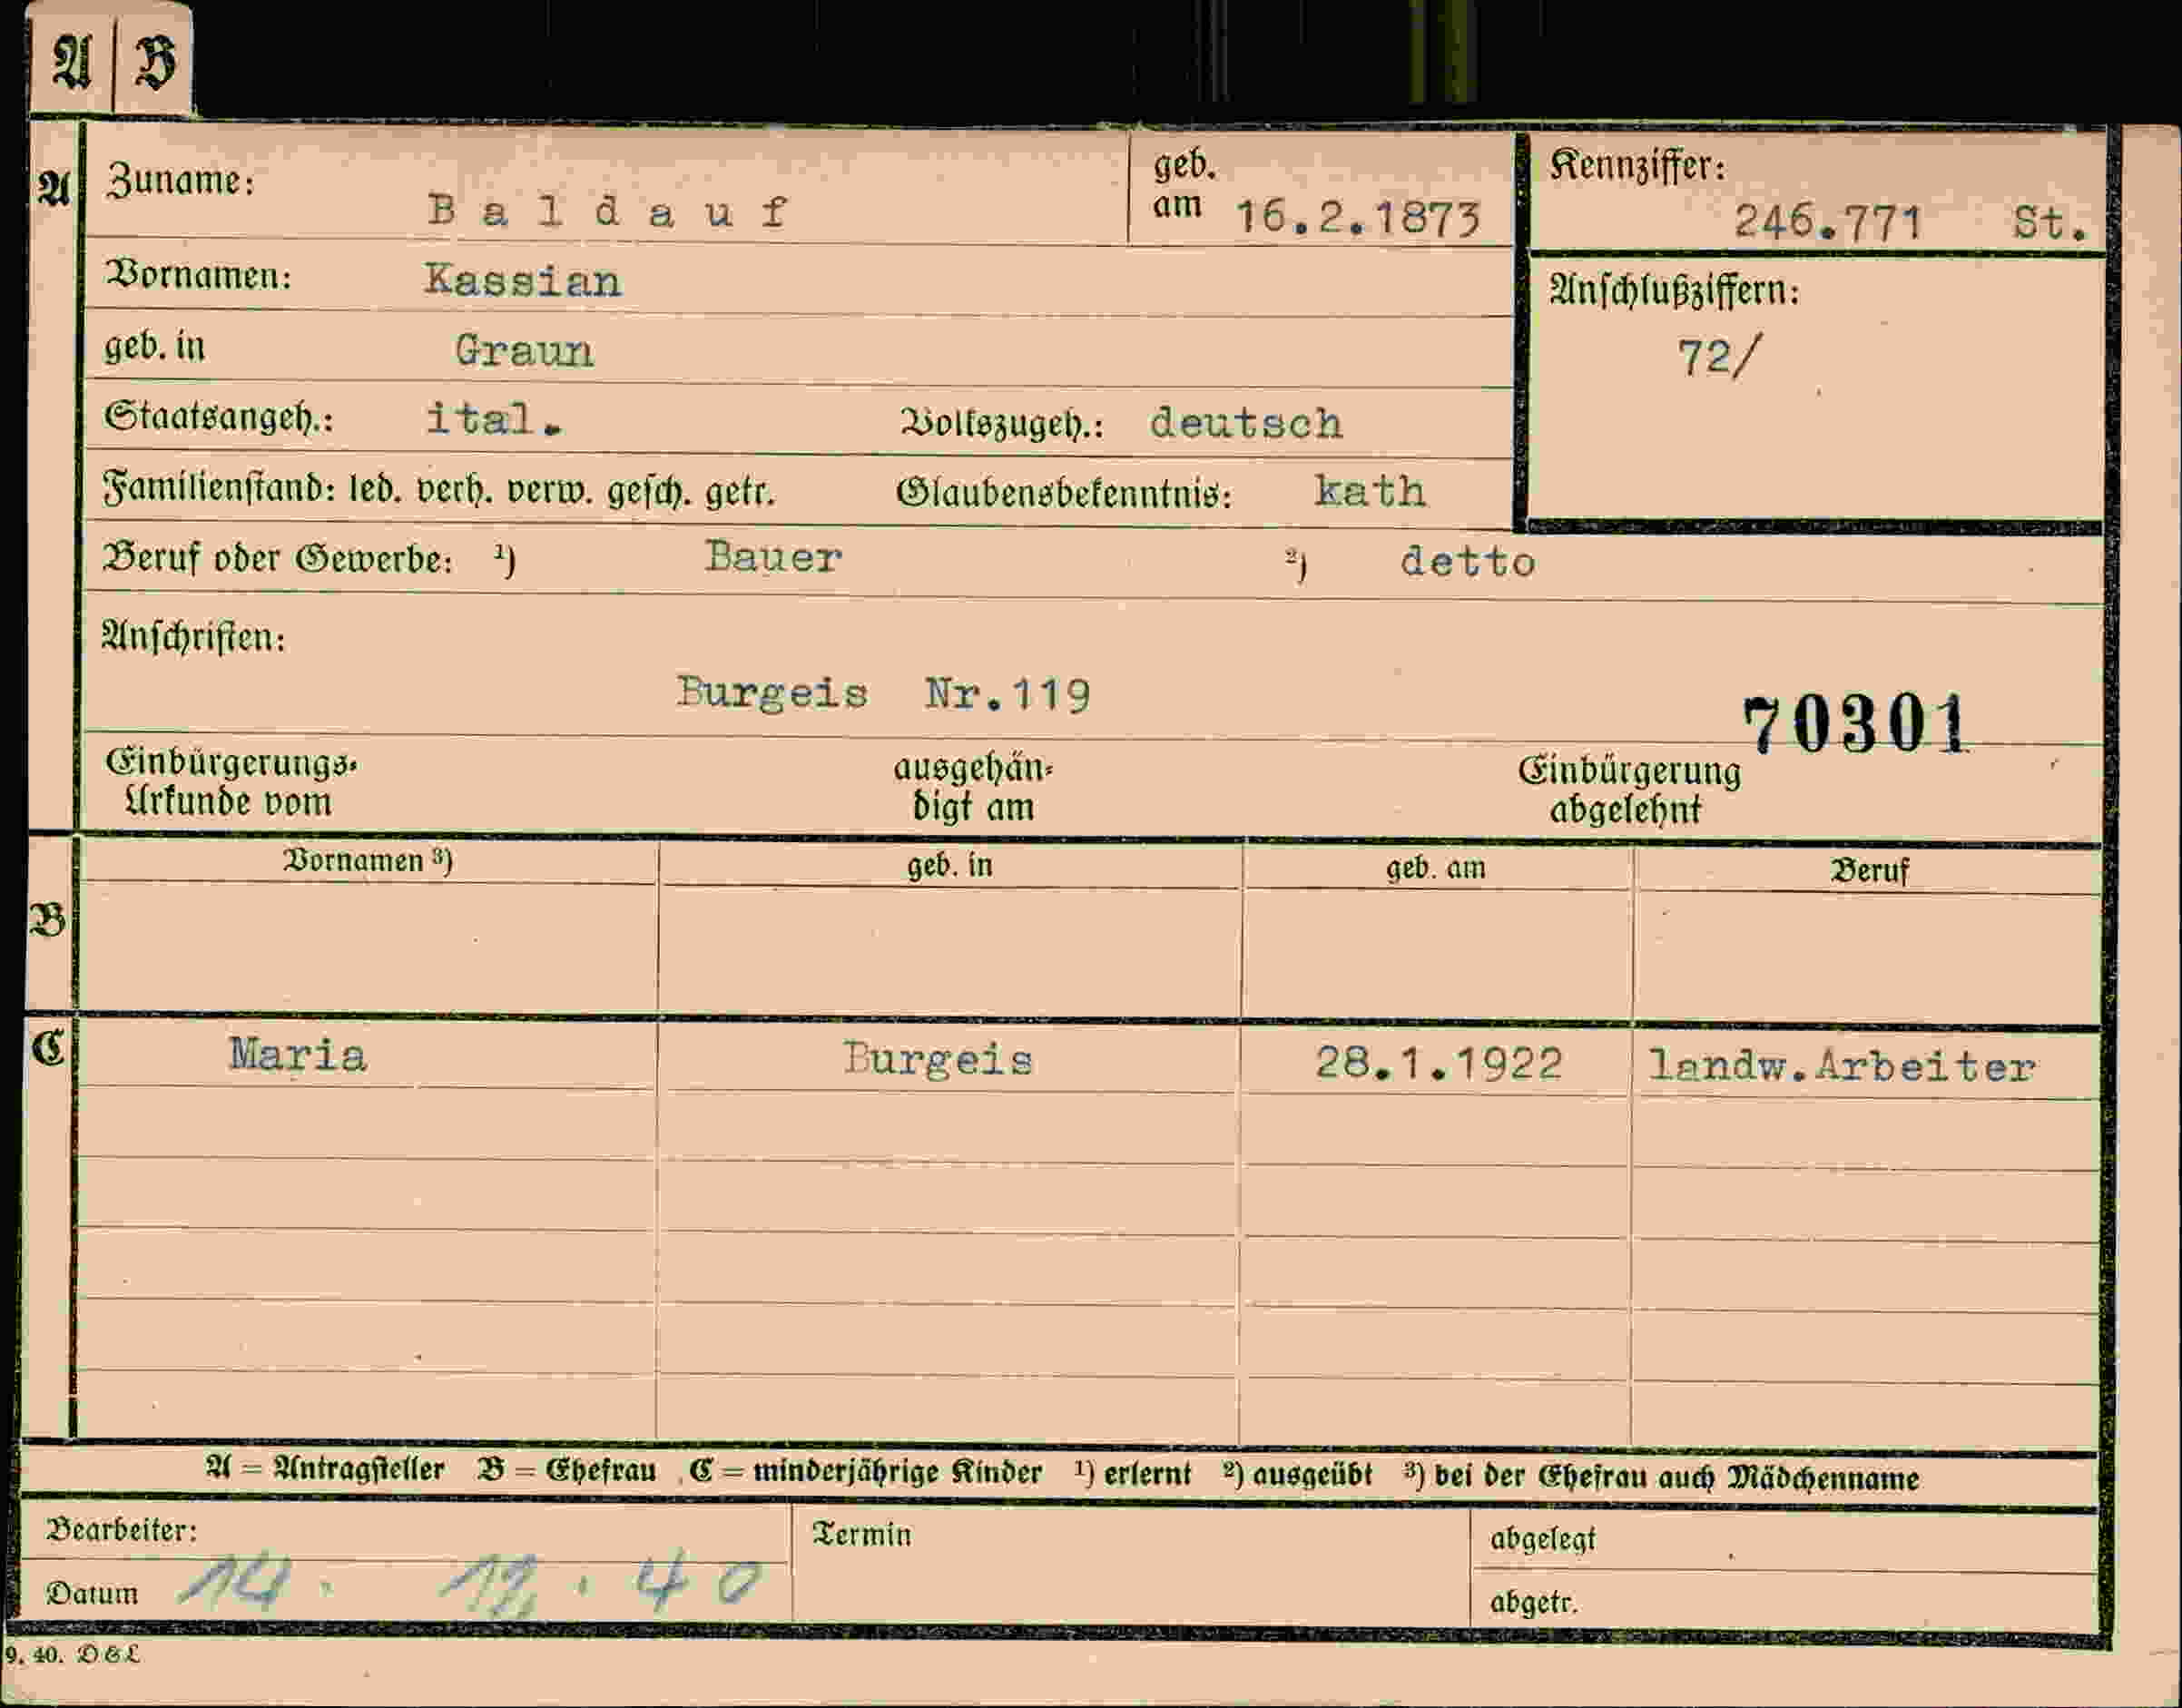 A B
A Zuname: Baldauf geb. am 16.2.1873 Kennziffer: 246.771 St.
Vornamen: Kassian Anschlußziffern:
geb. in Graun 72/
Staatsangeh.: ital. Volkszugeh.: deutsch
Familienstand: led. verh. verw. gesch. getr. Glaubensbekenntnis: kath
Beruf oder Gewerbe: 1) Bauer 2) detto
Anschriften:
Burgeis Nr.119 70301
Einbürgerungs- ausgehän- Einbürgerung
Urkunde vom digt am abgelehnt
Vornamen 3) geb. in geb. am Beruf
B
C Maria Burgeis 28.1.1922 landw.Arbeiter
A = Antragsteller B = Ehefrau C = minderjährige Kinder 1) erlernt 2) ausgeübt 3) bei der Ehefrau auch Mädchenname
Bearbeiter: Termin abgelegt
Datum 14. 12. 40 abgetr.
9. 40. D & L